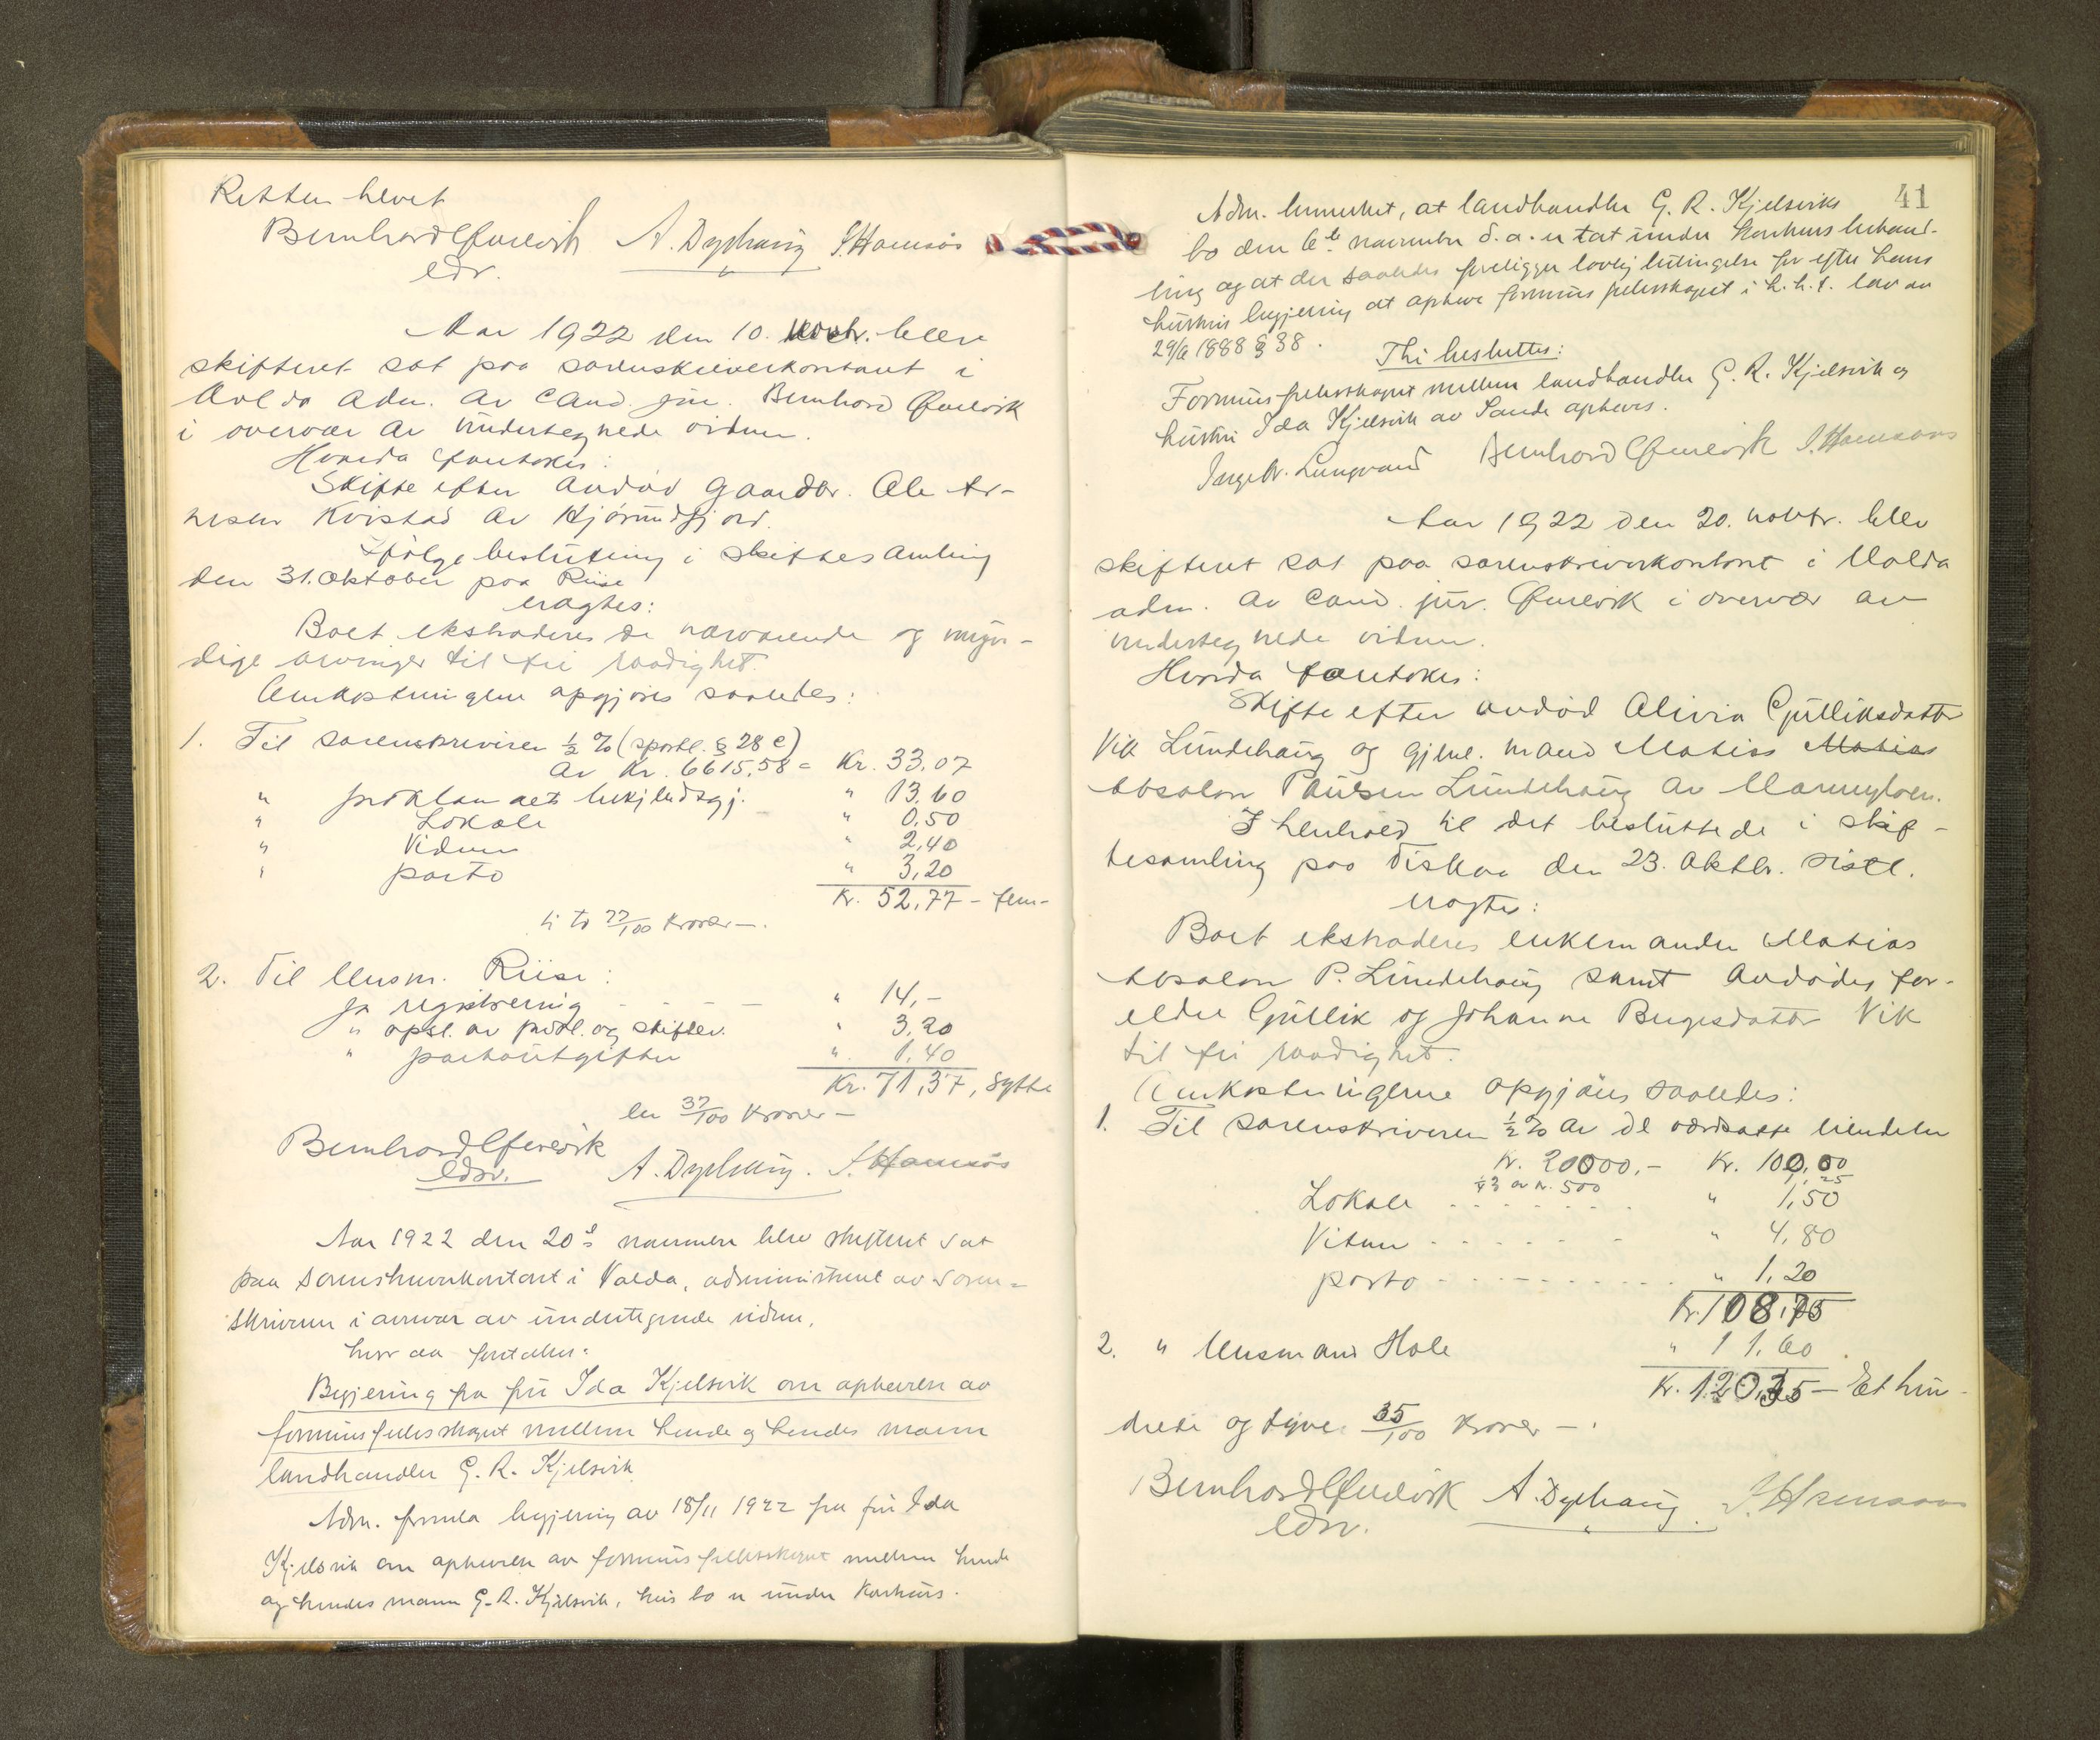 Retten hevet
Bernhard A. Dyphaug S. Hamsås
edsv.
Aar 1922 den 10. novbr. blev
skifteret sat paa sorenskriverkontoret i
Volda adm. av cand. jur. Bernhard
i overvær av undertegnede vidner.
Hvorda foretokes:
Skifte efter avdød gaardbr. Ole Ar-
nesen Kvistad av Hjørundfjord.
Ifølge beslutning i skiftesamling
den 31. oktober paa Riise
eragtes:
Boet ekstraderes de nærværende og myn-
dige arvinger til fri raadighet.
Omkostningene opgjøres saaledes:
1. Til sorenskriveren ½ % (sportl. § 28 c)
av kr. 6615,58 = kr. 33,07
" proklamaets bekjendtgj. " 13,60
" Lokale " 0,50
" Vidner " 2,40
" porto " 3,20
Kr. 52,77 - fem-
ti to 77/100 kroner —.
2. Til lensm. Riise:
for registrering - - - - " 14,-
" opsl. av prokl. og skiftev. " 3,20
" portoutgifter " 1,40
Kr. 71,37, sytti
en 37/100 kroner —
Bernhard A. Dyphaug. S. Hamsås
edsv.
Aar 1922 den 20de november blev skifteret sat
paa sorenskriverkontoret i Volda, administreret av soren=
skriveren i overvær av undertegnede vidner,
hvor da foretokes:
Begjering fra fru Ida Kjelsvik om ophevelse av
formuesfellesskapet mellem hende og hendes mann
landhandler G. R. Kjelsvik
Adm. fremla begjering av 18/11 1922 fra fru Ida
Kjelsvik om ophevelse av formuesfellesskapet mellem hende
og hendes mann G. R. Kjelsvik, hvis bo er under konkurs.
41
Adm. bemerket, at landhandler G. R. Kjelsviks
bo den 6te november d. a. er tat under konkursbehand-
ling og at der saaledes foreligger lovlig betingelse for efter hans
hustrus begjering at opheve formuesfellesskapet i h. h. t. lov av
29/6 1888 § 38.
Thi besluttes:
Formuesfellesskapet mellem landhandler G. R. Kjelsvik og
hustru Ida Kjelsvik av Sande opheves.
Ingebr. Bernhard S. Hamsaas
Aar 1922 den 20. novbr. blev
skifteret sat paa sorenskriverkontoret i Volda
adm. av cand. jur. i overvær av
undertegnede vidner.
Hvorda foretokes:
Skifte efter avdød Olivia Gulliksdatter
Vik Lundehaug og gjenl. mand Matias Matias
Absalon Paulsen Lundehaug av
I henhold til det besluttede i skif-
tesamling paa Fiskaa den 23. oktbr. sistl.
eragtes:
Boet ekstraderes enkemanden Matias
Absalon P. Lundehaug samt avdødes for-
eldre Gullik og Johanne Vik
til fri raadighet.
Omkostningerne opgjøres saaledes:
1. Til sorenskriveren ½ % av de værdsatte eiendeler
Kr. 20000,- Kr. 100,00
av kr. 500 1,25
Lokale - - - - - " 1,50
Vitner - - - - - " 4,80
porto - - - - - " 1,20
Kr. 108,75
2. " lensmand Hole " 11,60
Kr. 120,35 — Et hun-
drede og tyve 35/100 kroner —.
Bernhard A. Dyphaug. S. Hamsaas
edsv.